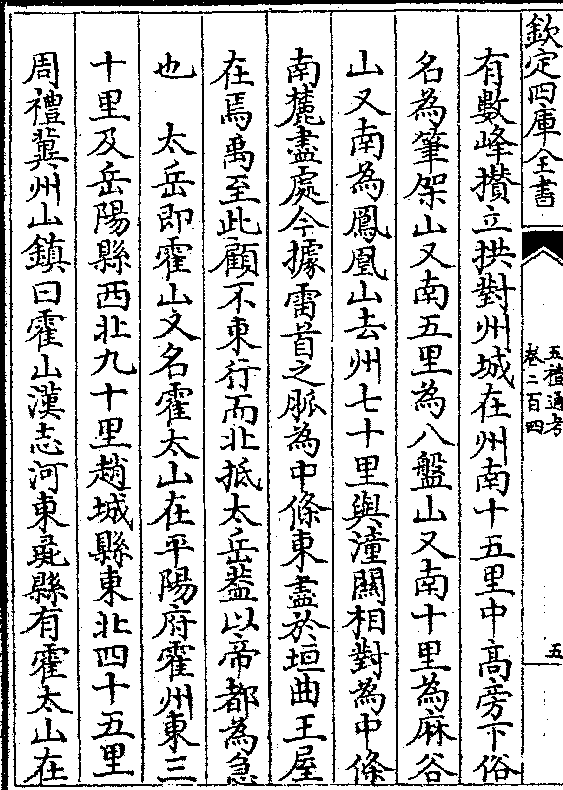 欽定四庫全書
五禮通考
卷二百四
五
有數峰攅立拱對州城在州南十五里中高旁下俗
名為筆架山又南五里為八盤山又南十里為麻谷
山又南為鳳凰山去州七十里與潼關相對為中條
南麓盡處今據雷首之脈為中條東盡於垣曲王屋
在焉禹至此顧不東行而北抵太岳葢以帝都為急
也　太岳即霍山又名霍太山在平陽府霍州東三
十里及岳陽縣西北九十里趙城縣東北四十五里
周禮冀州山鎮曰霍山漢志河東彘縣有霍太山在